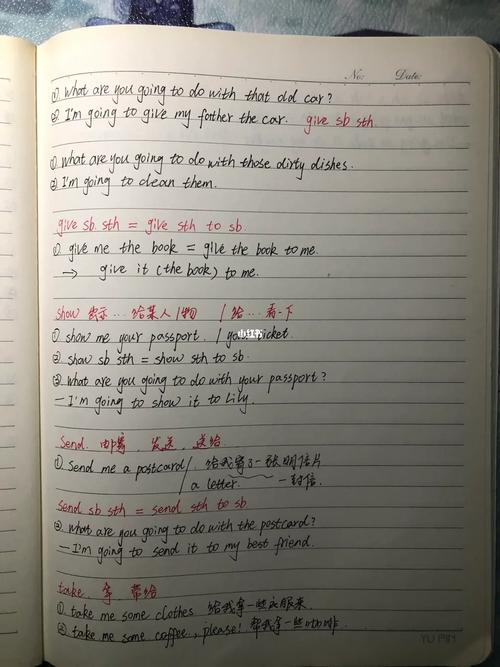 No: Date:
① What are you going to do with that old car?
② I'm going to give my father the car. give sb sth
① What are you going to do with those dirty dishes.
② I'm going to clean them.
give sb. sth = give sth to sb
① give me the book = give the book to me.
→ give it (the book) to me.
show 告示… 给某人/物 / 给…看一下
① show me your passport. / your ticket
小红书
② show sb sth = show sth to sb.
③ What are you going to do with your passport?
— I'm going to show it to Lily.
Send. 邮寄, 发送, 送给
① Send me a postcard/ 给我寄了一张明信片
a letter. 一封信.
Send sb sth = send sth to sb
② What are you going to do with the postcard?
— I'm going to send it to my best friend.
take. 拿 带给
① take me some clothes 给我拿一些衣服来.
② take me some coffee, please! 帮我拿一些咖啡.